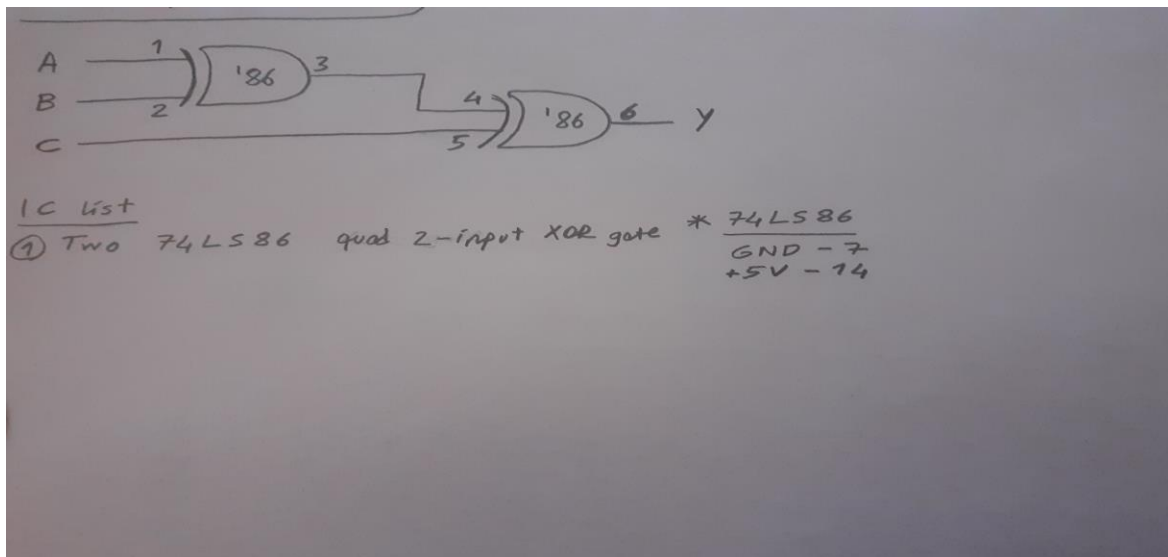 A 1 '86 3
B 2 4 '86 6 Y
C 5
IC list
① Two 74LS86 quad 2-input XOR gate * 74LS86
GND - 7
+5V - 14